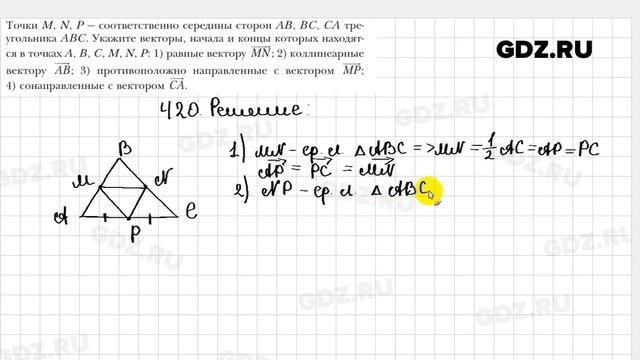 Точки M, N, P − соответственно середины сторон AB, BC, CA тре-
угольника ABC. Укажите векторы, начала и концы которых находят-
ся в точках A, B, C, M, N, P: 1) равные вектору MN; 2) коллинеарные
вектору AB; 3) противоположно направленные с вектором MP;
4) сонаправленные с вектором CA.
GDZ.RU
420. Решение:
1) MN - ср. л. △ ABC => MN = 1/2 AC = AP = PC
AP = PC = MN
2) NP - ср. л. △ ABC
B
M
N
A
P
C